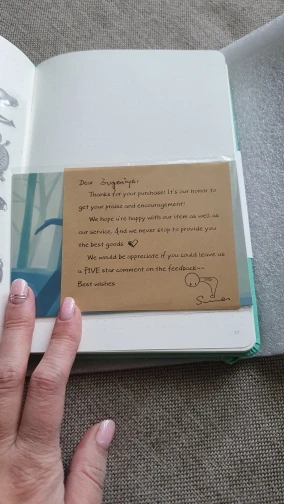 Dear Evgeniya:
Thanks for your purchase! It's our honor to
get your praise and encouragement!
We hope u're happy with our item as well as
our service. And we never stop to provide you
the best goods
We would be appreciate if you could leave us
a FIVE star comment on the feedback~~
Best wishes